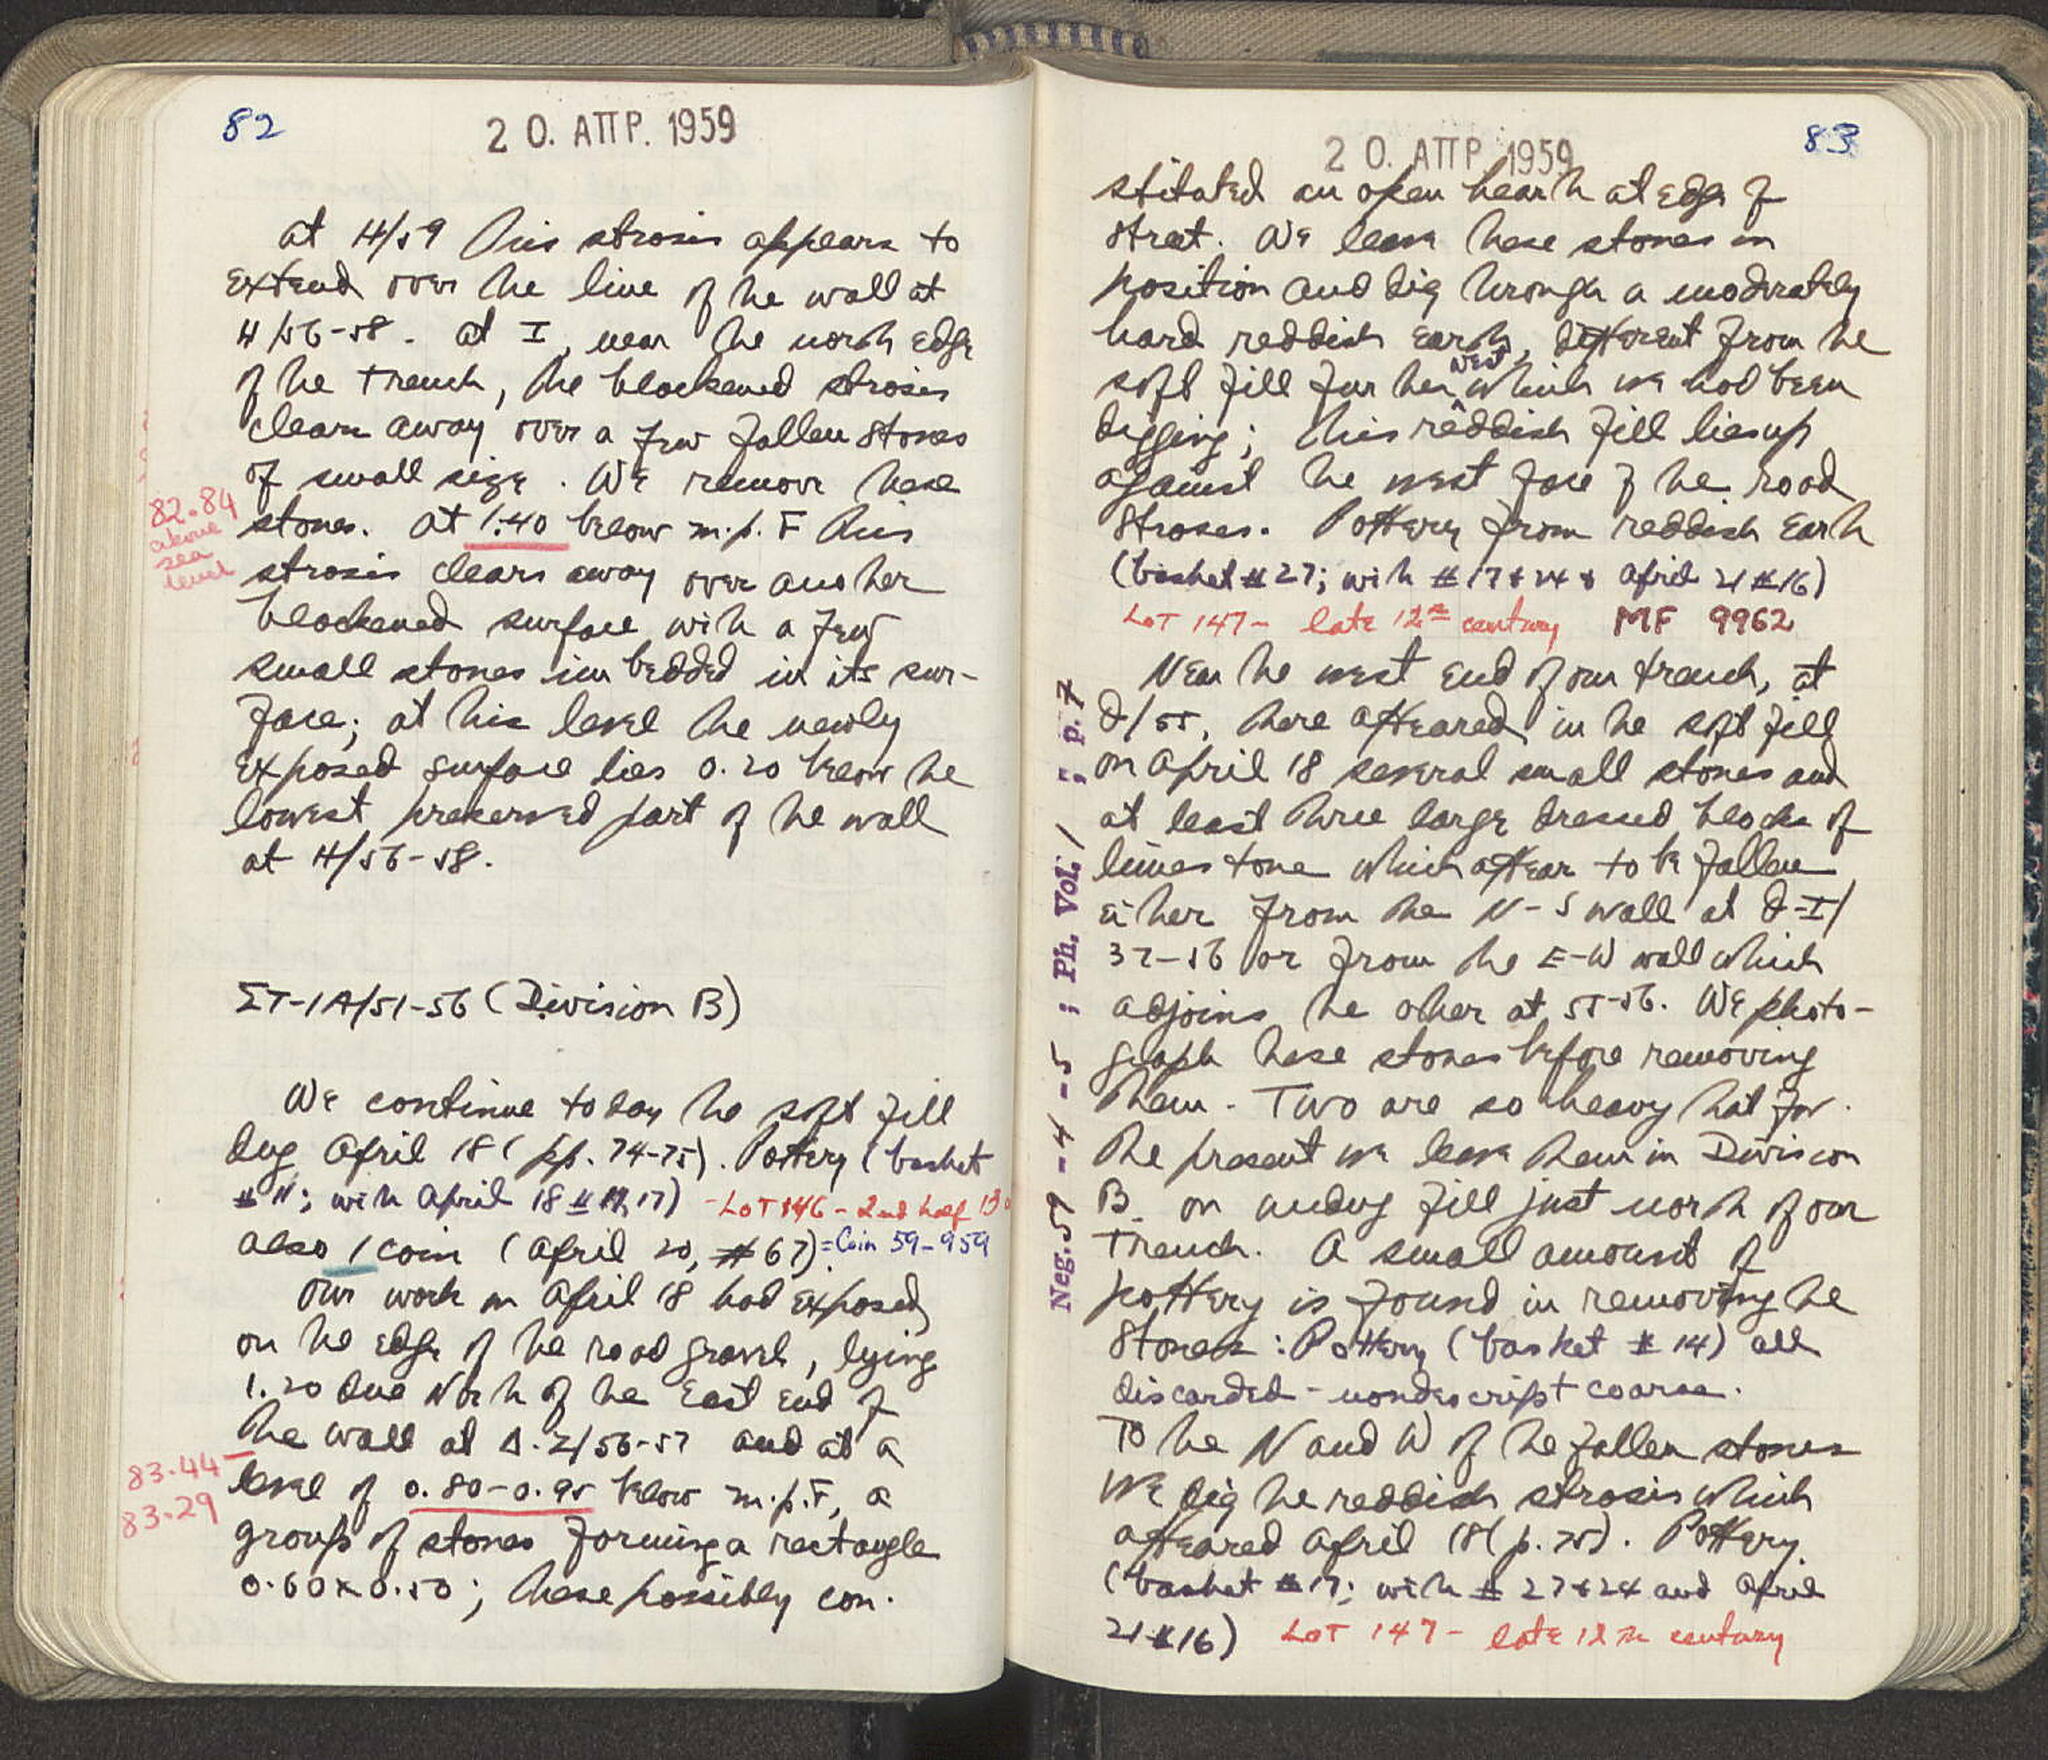 82
20. ΑΠΡ. 1959
at H/59 this strosis appears to
extend over the line of the wall at
H/56-58. at I, near the north edge
of the trench, the blackened strosis
clears away over a few fallen stones
of small size. We remove these
stones. At 1.40 below m.p. F this
82.84
above
sea
level
strosis clears away over another
blackened surface with a few
small stones imbedded in its sur-
face; at this level the newly
exposed surface lies 0.20 below the
lowest preserved part of the wall
at H/56-58.
ΣT-1A/51-56 (Division B)
We continue today the soft fill
dug April 18 (pp. 74-75). Pottery (basket
with April 18 # 17) - LOT 146 - 2nd half 13
also 1 coin (April 20, #67) = Coin 59-959
Our work on April 18 had exposed
on the edge of the road gravel, lying
1.20 due North of the East end of
the wall at Δ-Z/56-57 and at a
83.44 -
83.29
level of 0.80-0.95 below m.p. F, a
group of stones forming a rectangle
0.60 x 0.50; these possibly con-
83
20. ΑΠΡ. 1959
stituted an open hearth at edge of
street. We leave these stones in
position and dig through a moderately
hard reddish earth, different from the
soft fill further west which we had been
digging; this reddish fill lies up
against the west face of the road
stroses. Pottery from reddish earth
(basket #27; with #17 & 24 & April 21 #16)
LOT 147 - late 12th century MF 9962
Near the west end of our trench, at
/55, there appeared in the soft fill
on April 18 several small stones and
at least three large dressed blocks of
limestone which appear to be fallen
either from the N-S wall at
37-56 or from the E-W wall which
adjoins the other at 55-56. We photo-
graph these stones before removing
them. Two are so heavy that for
the present we leave them in Division
B on undug fill just north of our
trench. A small amount of
pottery is found in removing the
stones: Pottery (basket # 14) all
discarded - nondescript coarse.
To the N and W of the fallen stones
we dig the reddish strosis which
appeared April 18 (p. 75). Pottery
(basket #17; with # 27 & 24 and April
21 #16) LOT 147 - late 12th century
Neg. 59 - 4 - 5 ; Ph. Vol. / ; p. 7